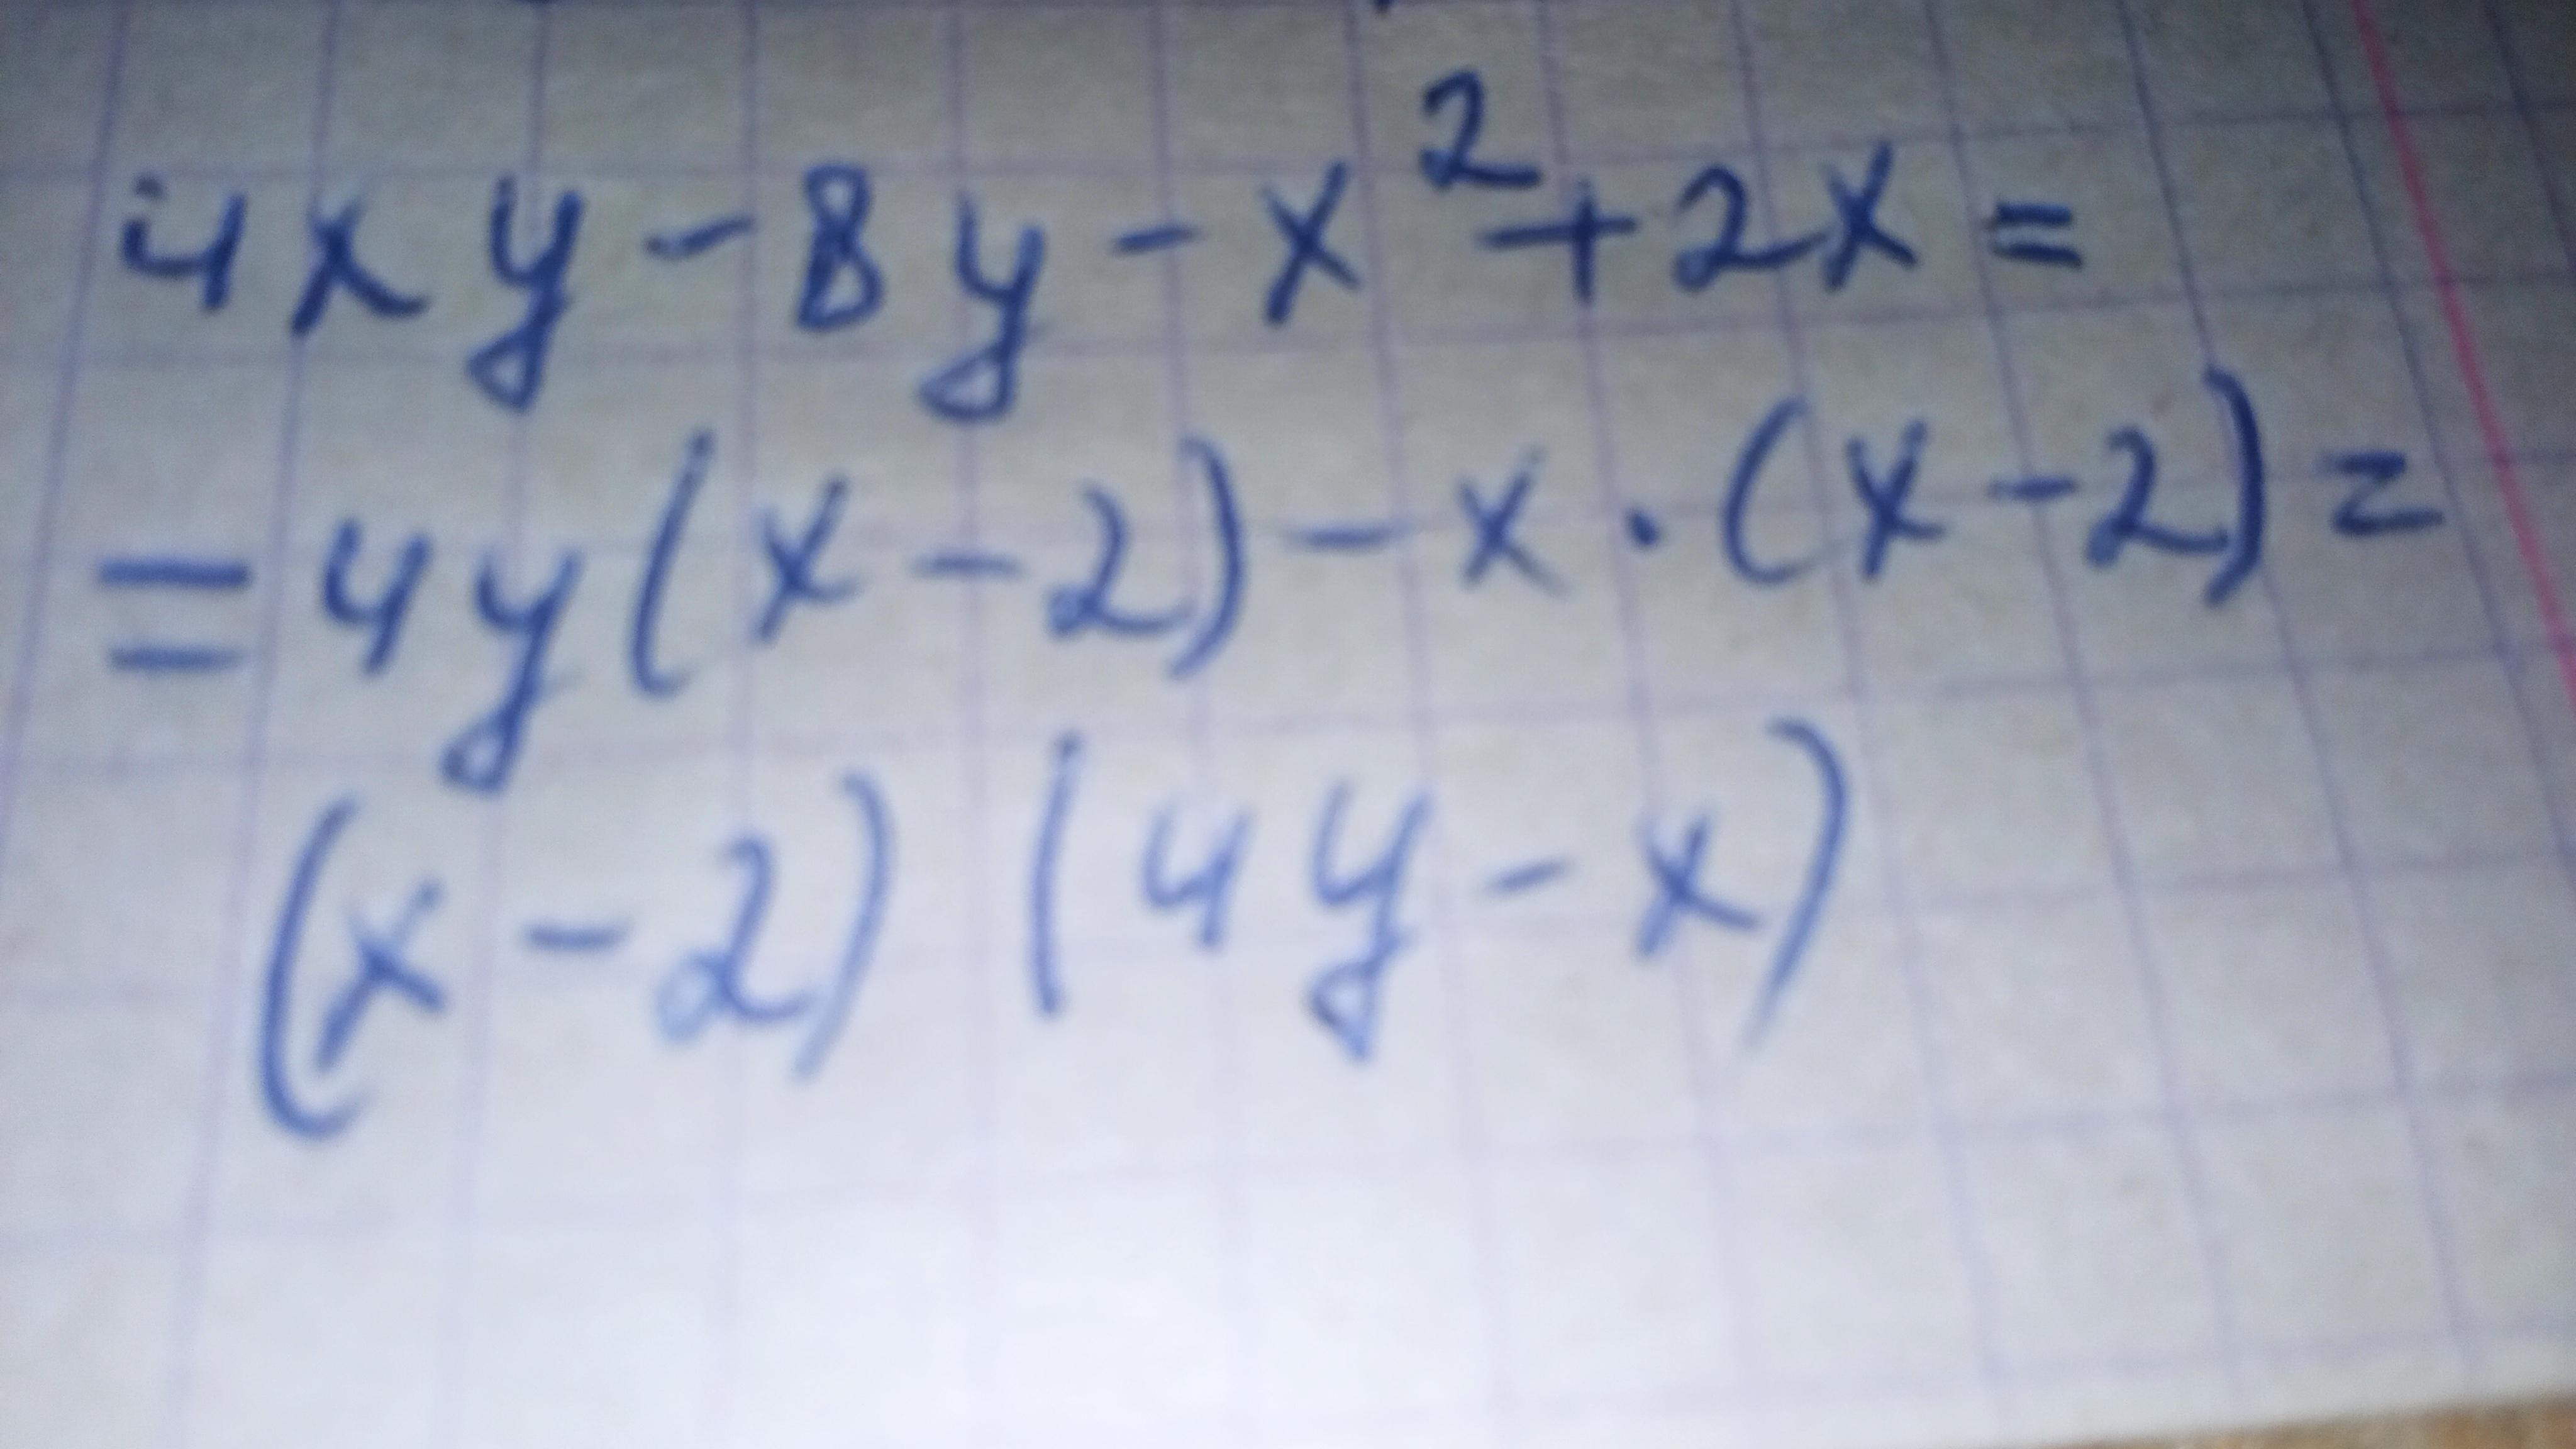 4xy-8y-x²+2x=
=4y(x-2)-x·(x-2)=
(x-2)(4y-x)